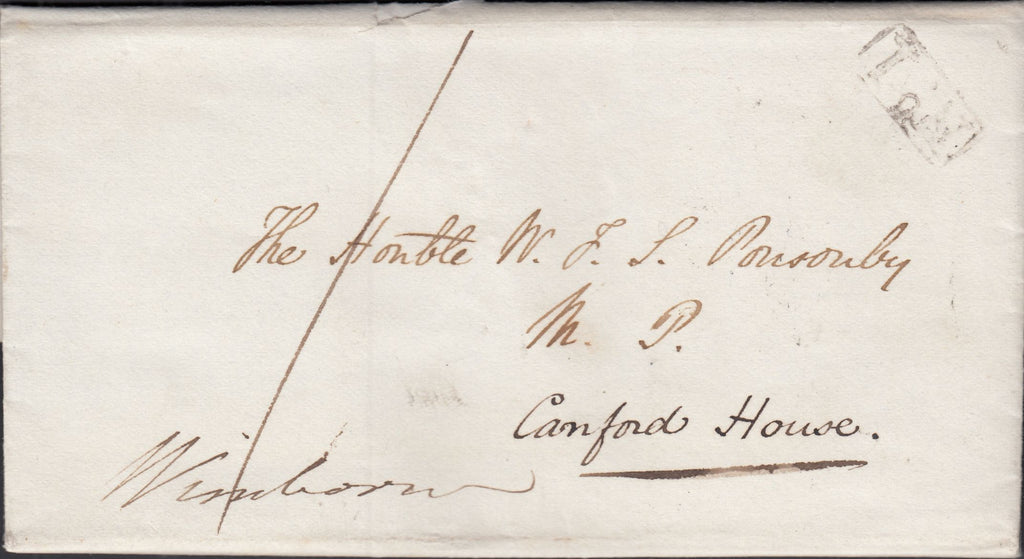 The Honble W. F. S. Ponsonby
M. P.
Canford House.
Wimborn